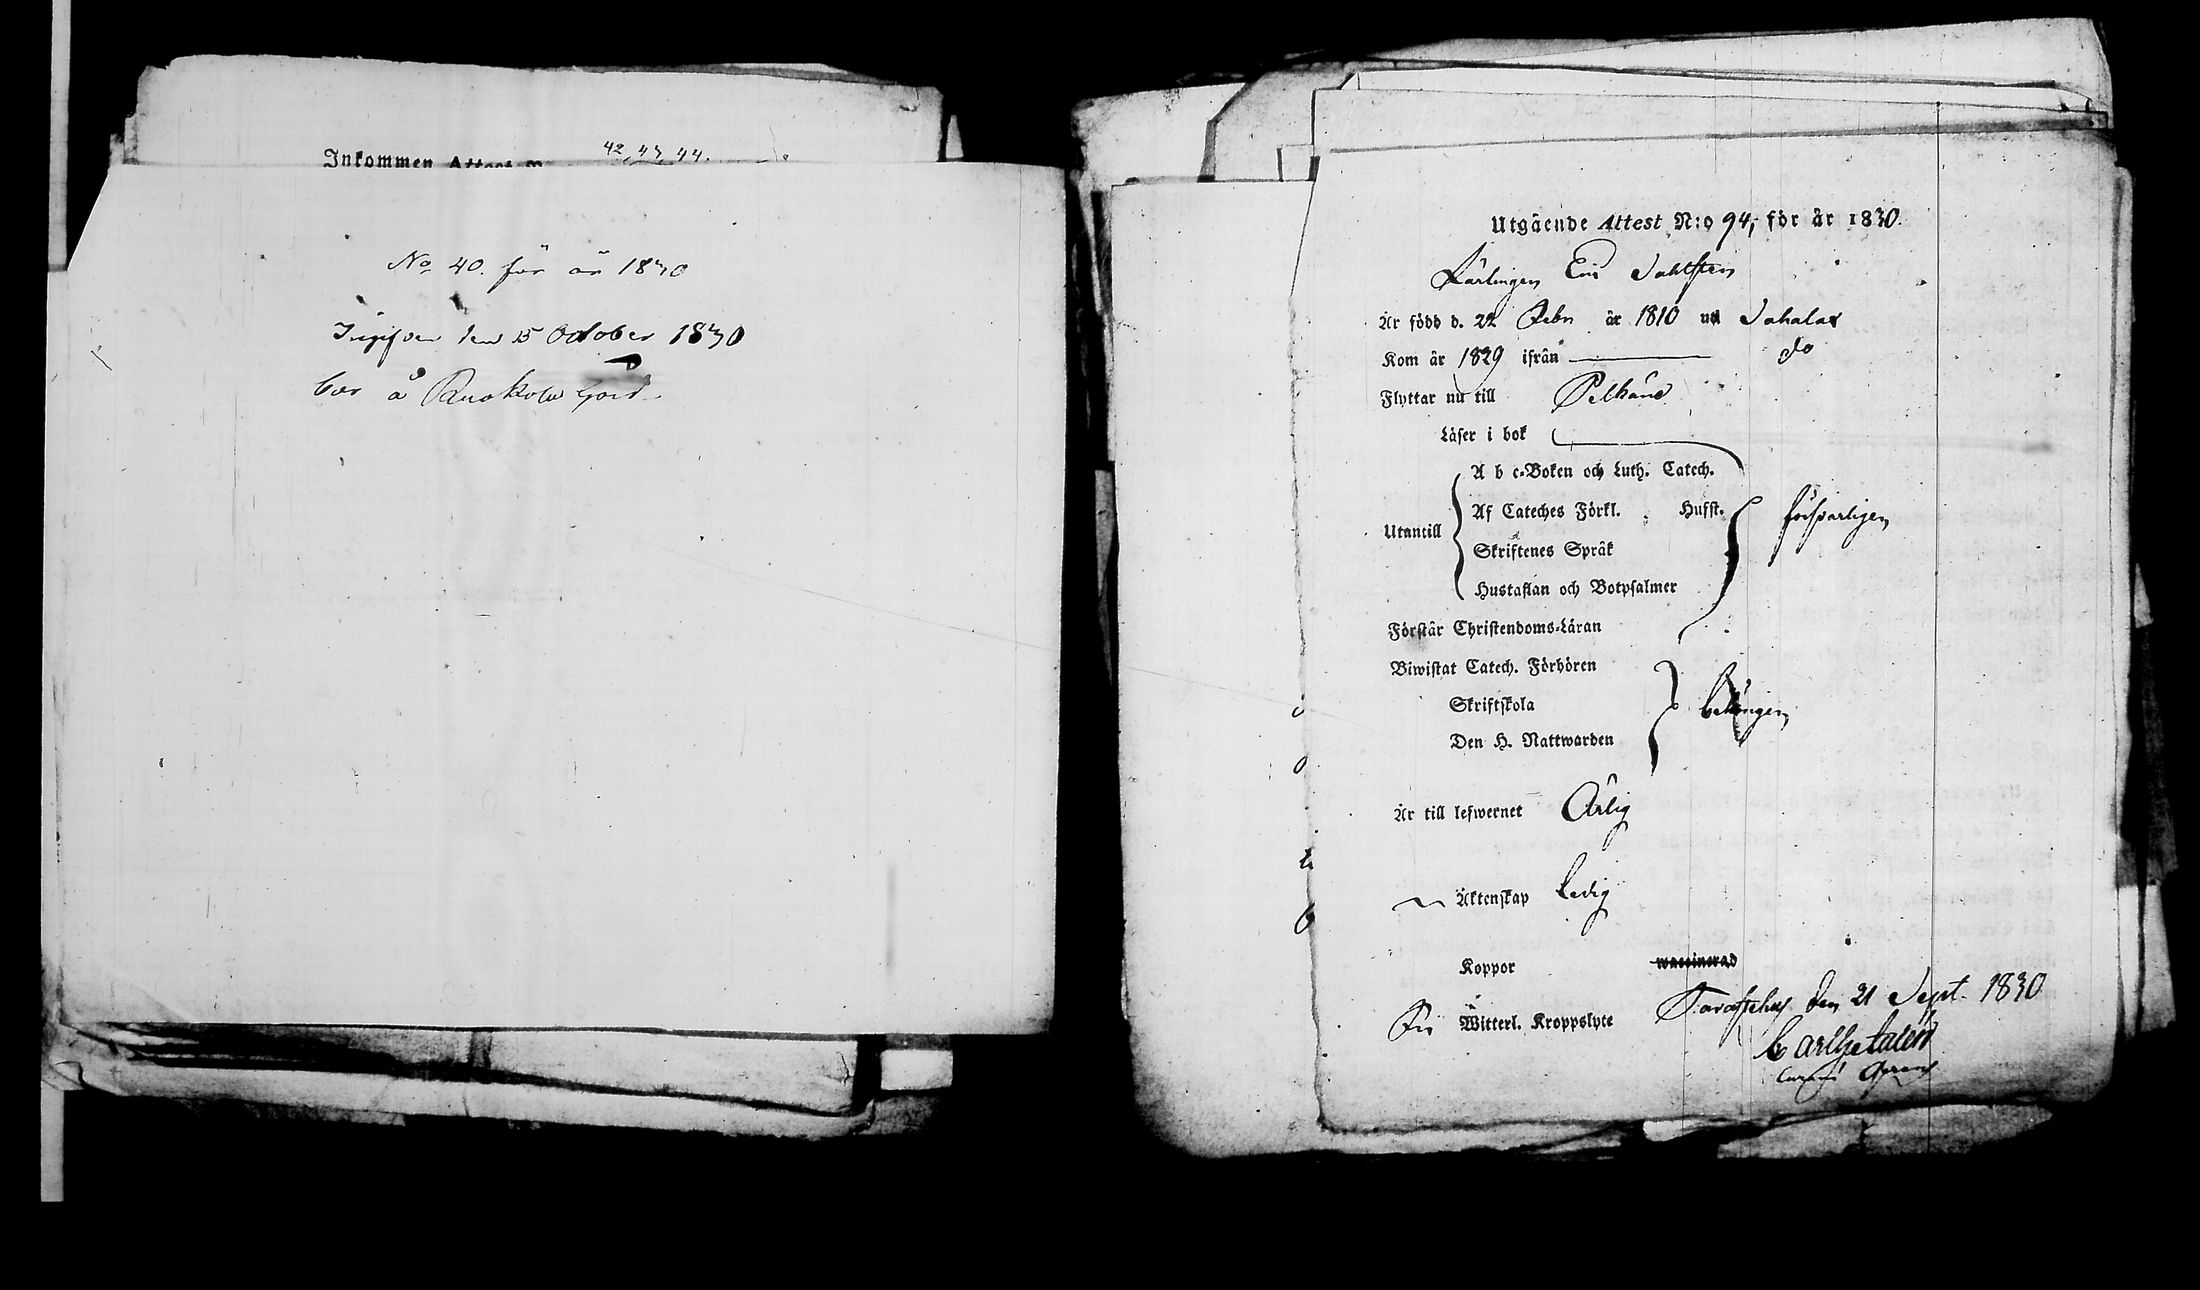 Inkommen Attest 42, 43, 44.
No 40. för år 1830
den 15 October 1830
bor å Ruokola Gård
Utgående Attest N:o 94, för år 1830.
Lärlingen Eric Dahlsten
Är född d. 22 Febr år 1810 uti Sahalax
Kom år 1829 ifrån do
Flyttar nu till Pelkäne
Läser i bok
A b c-Boken och Luth. Catech.
Af Cateches Förkl. Hufst.
Utantill försvarligen
Skriftenes Språk
Hustaflan och Botpsalmer
Förstår Christendoms-Läran
Biwistat Catech. Förhören
Skriftskola behörigen
Den H. Nattwarden
Är till lefwernet Ärlig
Äktenskap Ledig
Koppor waccinerad
Fri Witterl. Kroppslyte
Tavastehus den 21 Sept. 1830